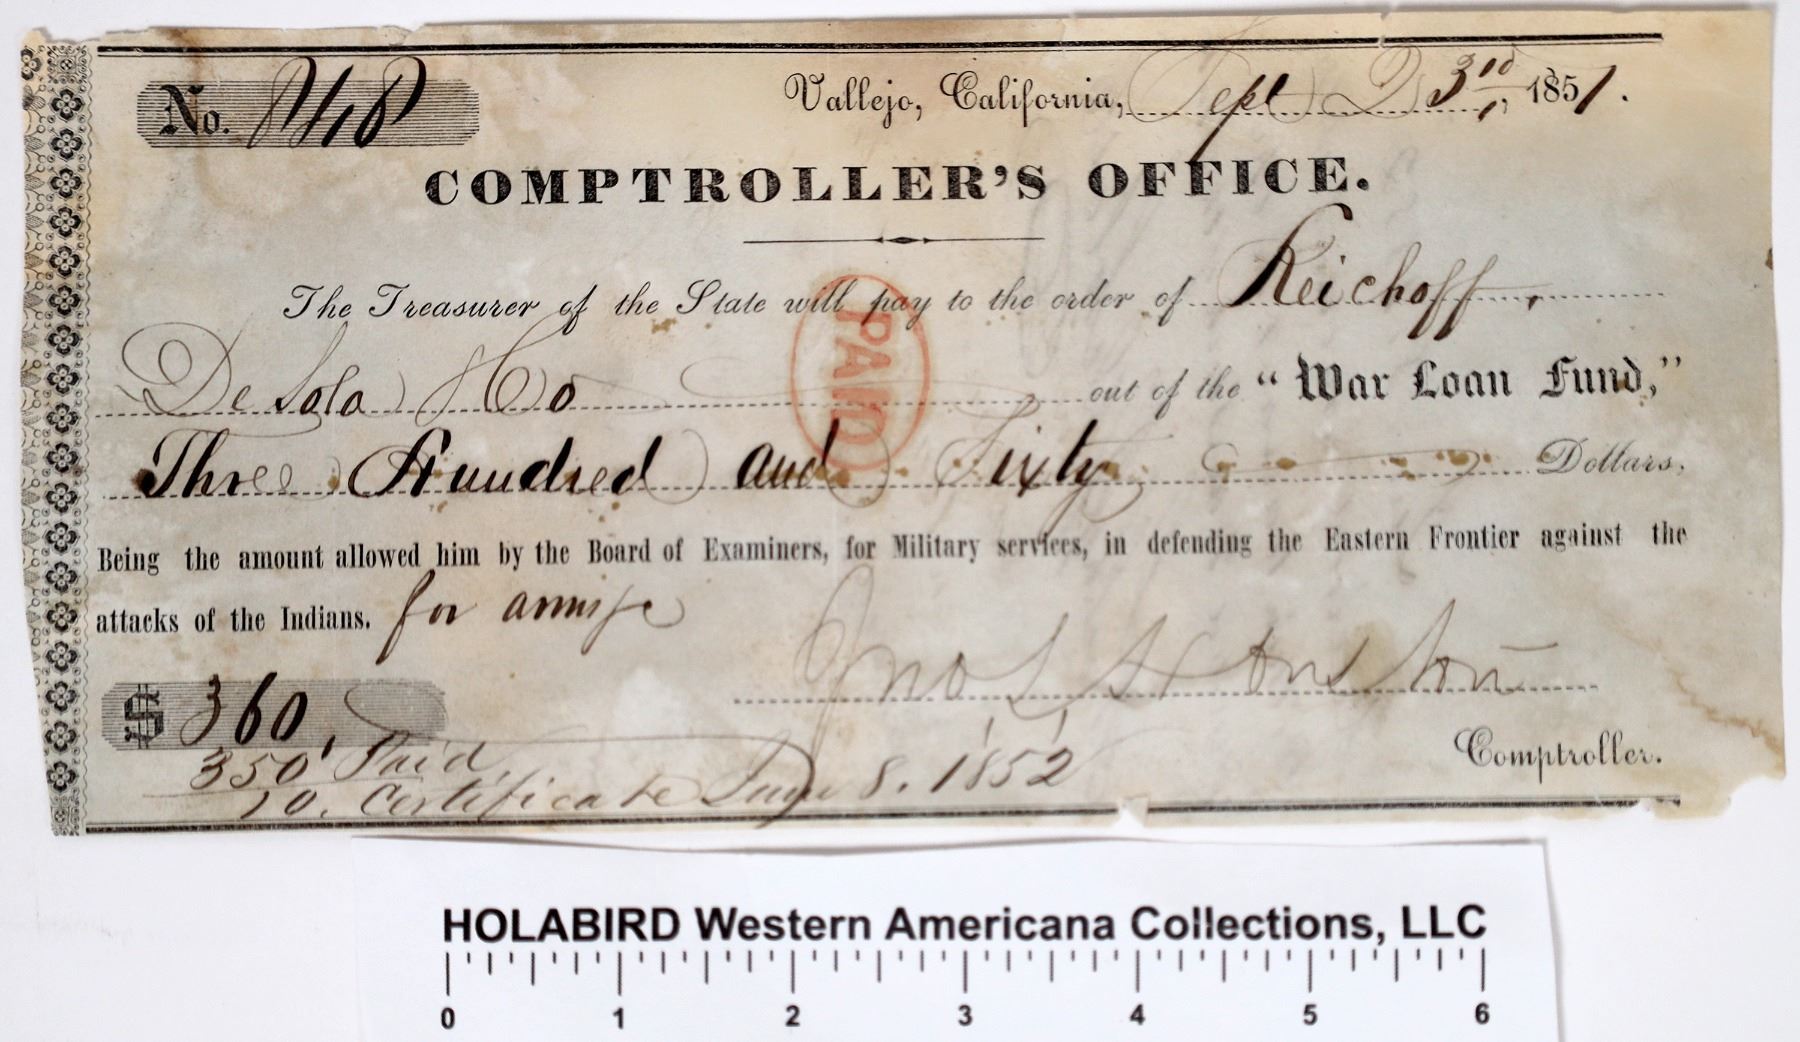 No. 848
Vallejo, California, Sept 23rd, 1851.
COMPTROLLER'S OFFICE.
The Treasurer of the State will pay to the order of Reichoff,
De Sola & Co out of the "War Loan Fund,"
PAID
Three Hundred and Sixty Dollars,
Being the amount allowed him by the Board of Examiners, for Military services, in defending the Eastern Frontier against the
attacks of the Indians. for
$ 360
Comptroller.
350 Paid
10. Certificate 8. 1852
HOLABIRD Western Americana Collections, LLC
0 1 2 3 4 5 6